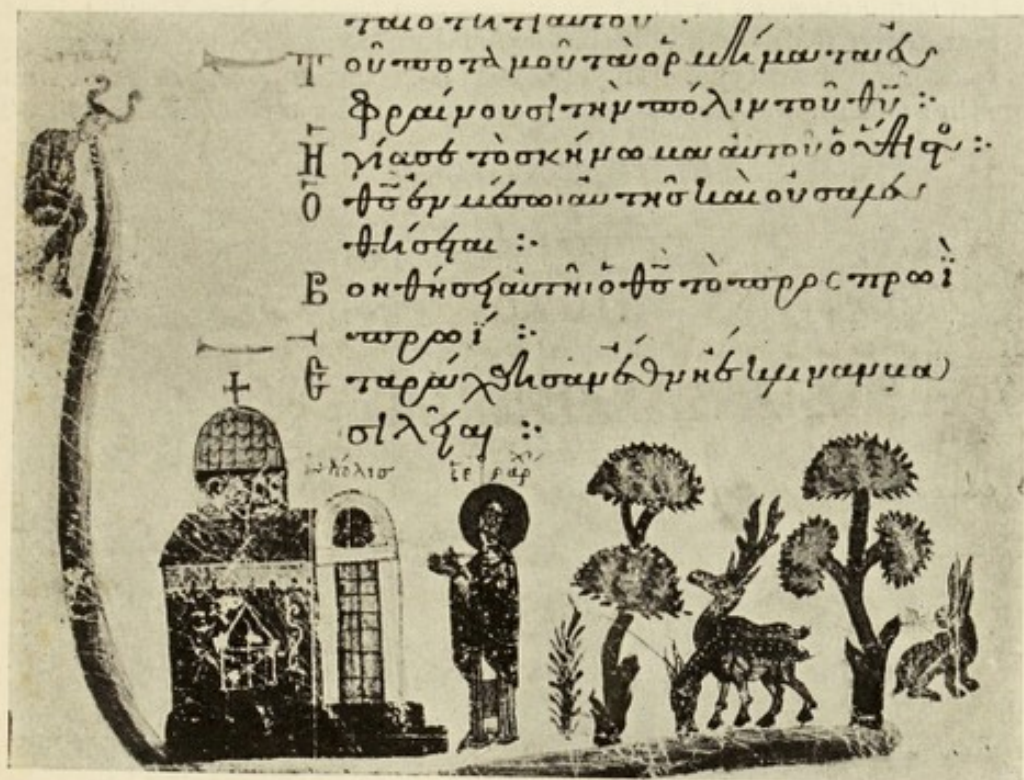 ταιότητι αὐτοῦ ·
Τοῦ ποταμοῦ τὰ ὁρμήματα εὐ
φραίνουσι τὴν πόλιν τοῦ θῦ :·
Ἡγίασε τὸ σκήνωμα αὐτοῦ ὁ
Ὁ θς ἐν μέσωι αὐτῆς καὶ οὐ σαλευ
θήσεται :·
Βοηθήσει αὐτῆι ὁ θς τὸ πρὸς πρωῒ
πρωΐ :·
Ἐταράχθησαν ἔθνη ἔκλιναν βα
σιλεῖαι :·
πόλισ
ἱεράρχ